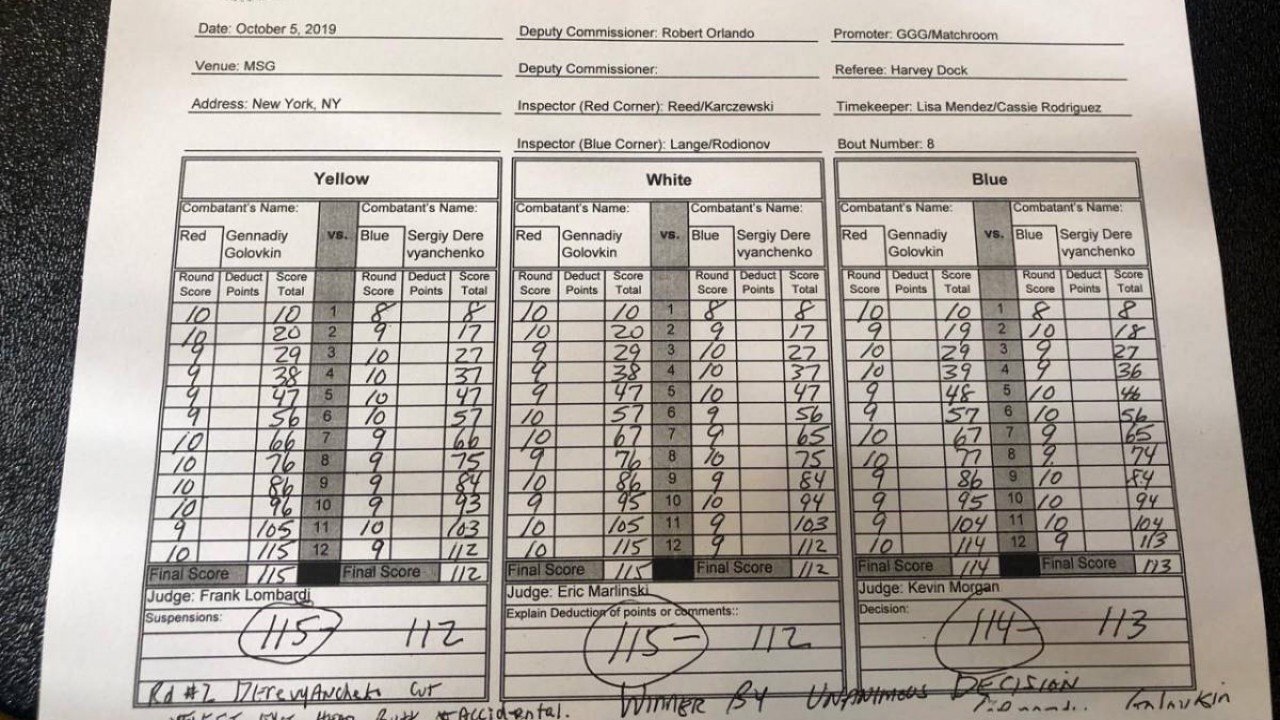 Date: October 5, 2019 Deputy Commissioner: Robert Orlando Promoter: GGG/Matchroom
Venue: MSG Deputy Commissioner: Referee: Harvey Dock
Address: New York, NY Inspector (Red Corner): Reed/Karczewski Timekeeper: Lisa Mendez/Cassie Rodriguez
Inspector (Blue Corner): Lange/Rodionov Bout Number: 8
Yellow White Blue
Combatant's Name: Combatant's Name: Combatant's Name: Combatant's Name: Combatant's Name: Combatant's Name:
Red Gennadiy vs. Blue Sergiy Dere Red Gennadiy vs. Blue Sergiy Dere Red Gennadiy vs. Blue Sergiy Dere
Golovkin vyanchenko Golovkin vyanchenko Golovkin vyanchenko
Round Deduct Score Round Deduct Score Round Deduct Score Round Deduct Score Round Deduct Score Round Deduct Score
Score Points Total Score Points Total Score Points Total Score Points Total Score Points Total Score Points Total
10 10 1 8 8 10 10 1 8 8 10 10 1 8 8
10 20 2 9 17 10 20 2 9 17 9 19 2 10 18
9 29 3 10 27 9 29 3 10 27 10 29 3 9 27
9 38 4 10 37 9 38 4 10 37 10 39 4 9 36
9 47 5 10 47 9 47 5 10 47 9 48 5 10 46
9 56 6 10 57 10 57 6 9 56 9 57 6 10 56
10 66 7 9 66 10 67 7 9 65 10 67 7 9 65
10 76 8 9 75 9 76 8 10 75 10 77 8 9 74
10 86 9 9 84 10 86 9 9 84 9 86 9 10 84
10 96 10 9 93 9 95 10 10 94 9 95 10 10 94
9 105 11 10 103 10 105 11 9 103 9 104 11 10 104
10 115 12 9 112 10 115 12 9 112 10 114 12 9 113
Final Score 115 Final Score 112 Final Score 115 Final Score 112 Final Score 114 Final Score 113
Judge: Frank Lombardi Judge: Eric Marlinski Judge: Kevin Morgan
Suspensions: Explain Deduction of points or comments:: Decision:
115- 112 115- 112 114- 113
Rd #2 Cut WINNER BY UNANIMOUS DECISION
Butt Accidental. Golovkin